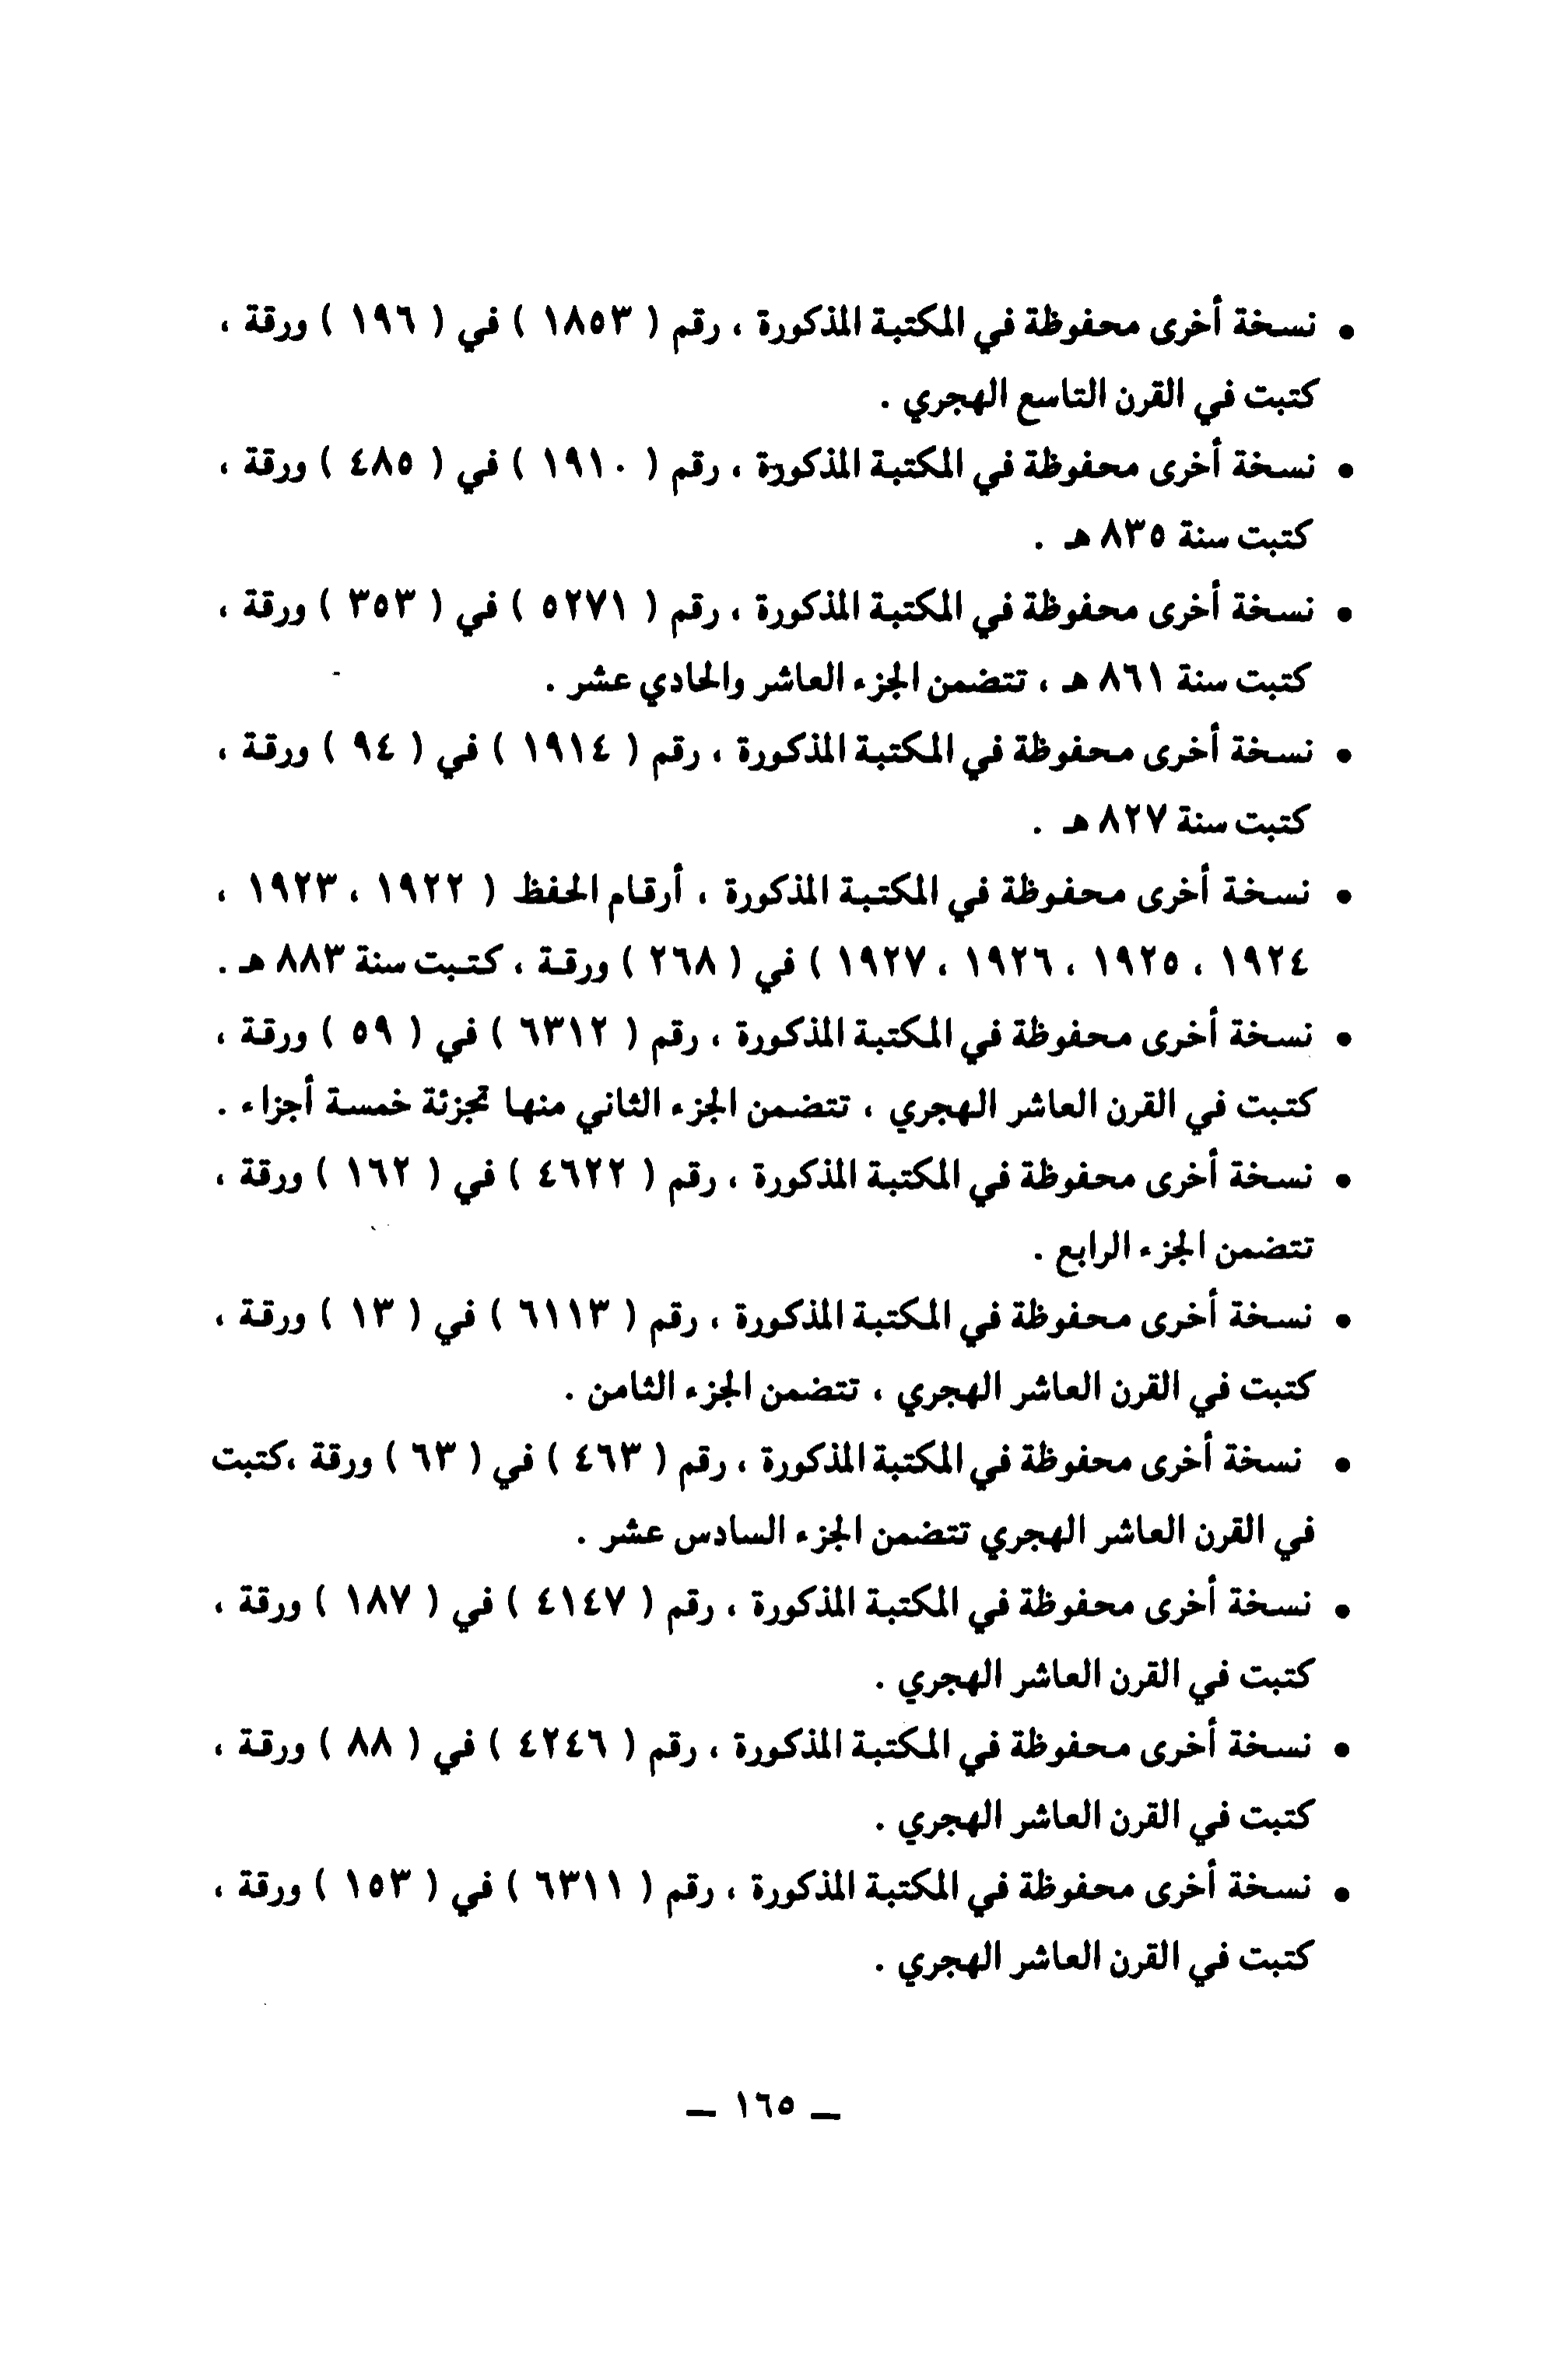 • نسخة أخرى محفوظة في المكتبة المذكورة ، رقم ( ١٨٥٣ ) في ( ١٩٦ ) ورقة ،
كتبت في القرن التاسع الهجري .
• نسخة أخرى محفوظة في المكتبة المذكورة ، رقم ( ١٩١٠ ) في ( ٤٨٥ ) ورقة ،
كتبت سنة ٨٣٥ هـ .
• نسخة أخرى محفوظة في المكتبة المذكورة ، رقم ( ٥٢٧١ ) في ( ٣٥٣ ) ورقة ،
كتبت سنة ٨٦١ هـ ، تتضمن الجزء العاشر والحادي عشر .
• نسخة أخرى محفوظة في المكتبة المذكورة ، رقم ( ١٩١٤ ) في ( ٩٤ ) ورقة ،
كتبت سنة ٨٢٧ هـ .
• نسخة أخرى محفوظة في المكتبة المذكورة ، أرقام الحفظ ( ١٩٢٢ ، ١٩٢٣ ،
١٩٢٤ ، ١٩٢٥ ، ١٩٢٦ ، ١٩٢٧ ) في ( ٢٦٨ ) ورقة ، كتبت سنة ٨٨٣ هـ .
• نسخة أخرى محفوظة في المكتبة المذكورة ، رقم ( ٦٣١٢ ) في ( ٥٩ ) ورقة ،
كتبت في القرن العاشر الهجري ، تتضمن الجزء الثاني منها تجزئة خمسة أجزاء .
• نسخة أخرى محفوظة في المكتبة المذكورة ، رقم ( ٤٦٢٢ ) في ( ١٦٢ ) ورقة ،
تتضمن الجزء الرابع .
• نسخة أخرى محفوظة في المكتبة المذكورة ، رقم ( ٦١١٣ ) في ( ١٣ ) ورقة ،
كتبت في القرن العاشر الهجري ، تتضمن الجزء الثامن .
• نسخة أخرى محفوظة في المكتبة المذكورة ، رقم ( ٤٦٣ ) في ( ٦٣ ) ورقة ،كتبت
في القرن العاشر الهجري تتضمن الجزء السادس عشر .
• نسخة أخرى محفوظة في المكتبة المذكورة ، رقم ( ٤١٤٧ ) في ( ١٨٧ ) ورقة ،
كتبت في القرن العاشر الهجري .
• نسخة أخرى محفوظة في المكتبة المذكورة ، رقم ( ٤٢٤٦ ) في ( ٨٨ ) ورقة ،
كتبت في القرن العاشر الهجري .
• نسخة أخرى محفوظة في المكتبة المذكورة ، رقم ( ٦٣١١ ) في ( ١٥٣ ) ورقة ،
كتبت في القرن العاشر الهجري .
ـ ١٦٥ ـ